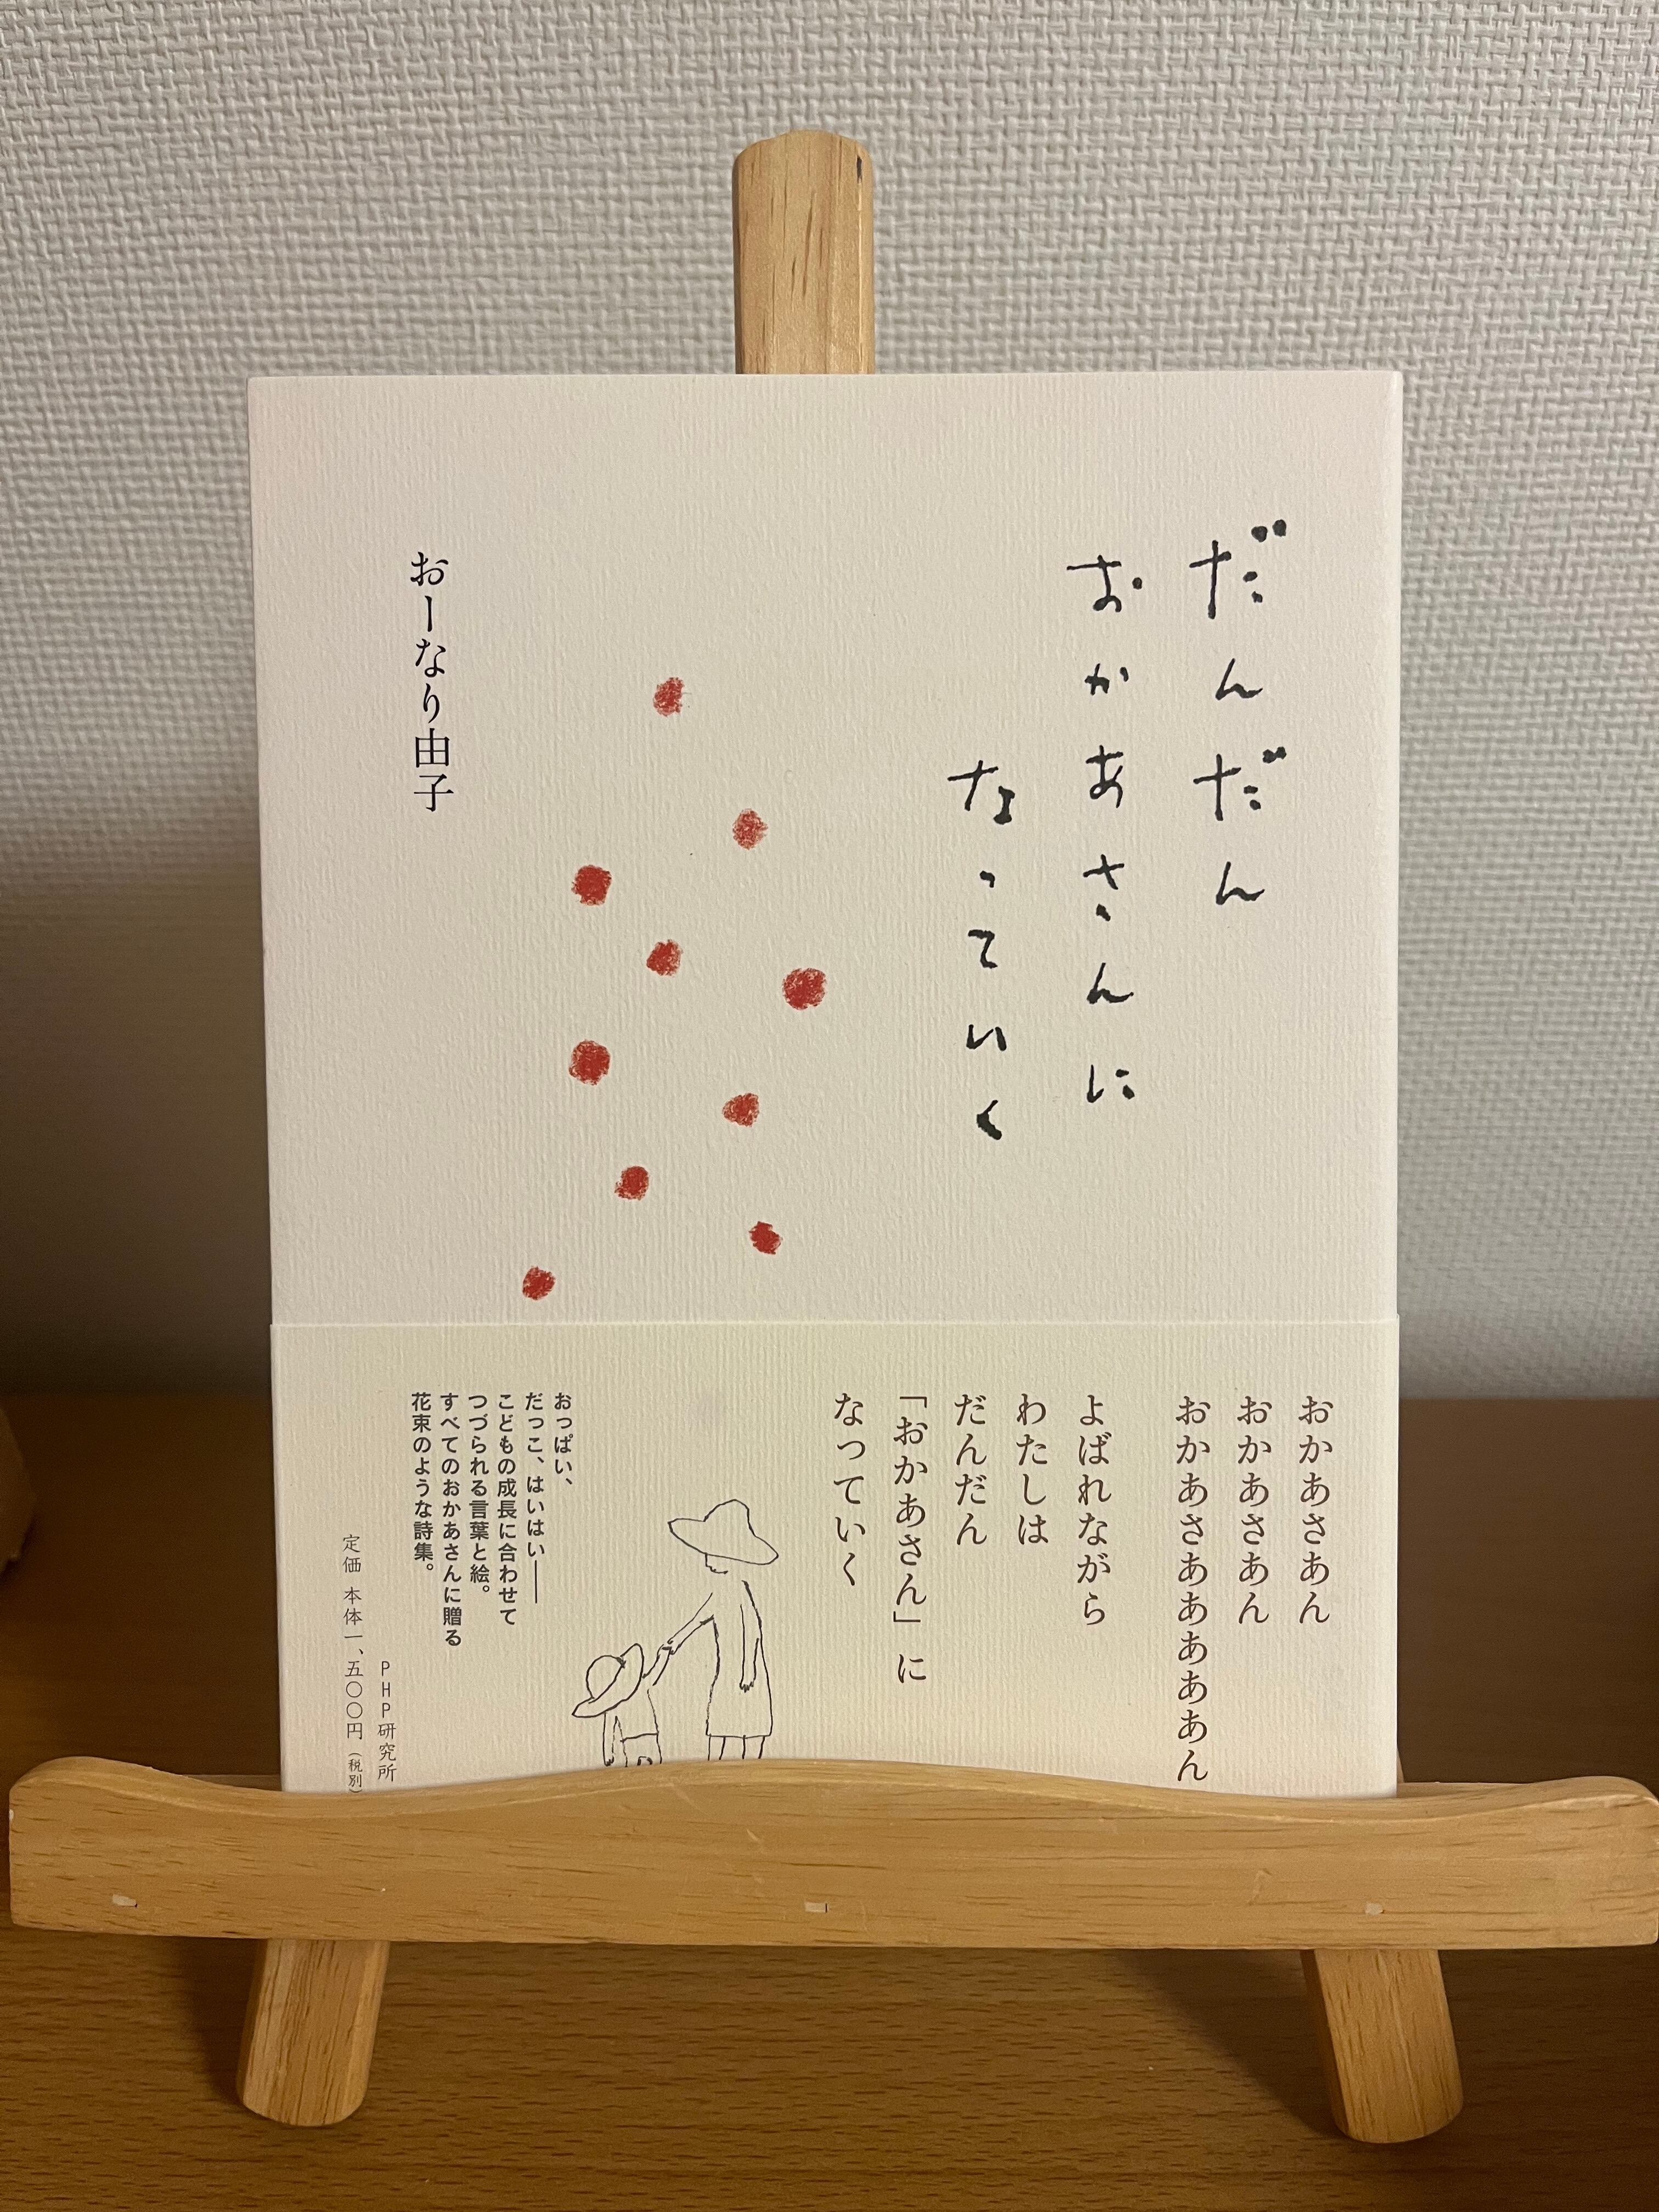 だんだん
おかあさんに
なっていく
おーなり由子
おかあさあん
おかあさあん
おかあさあああああああん
よばれながら
わたしは
だんだん
「おかあさん」に
なっていく
おっぱい、
だっこ、はいはい――
こどもの成長に合わせて
つづられる言葉と絵。
すべてのおかあさんに贈る
花束のような詩集。
PHP研究所
定価 本体一、五〇〇円(税別)